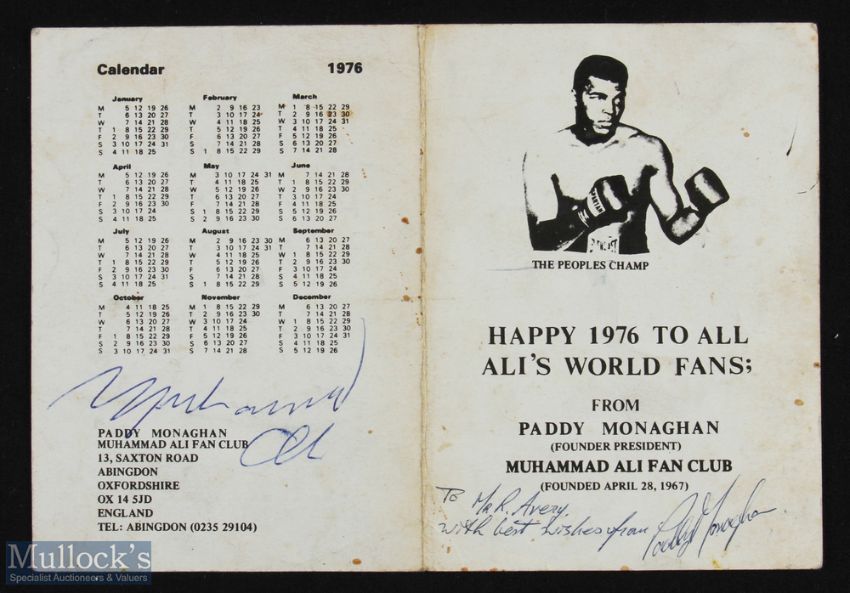 Calendar 1976
January
M 5 12 19 26
T 6 13 20 27
W 7 14 21 28
T 1 8 15 22 29
F 2 9 16 23 30
S 3 10 17 24 31
S 4 11 18 25
February
M 2 9 16 23
T 3 10 17 24
W 4 11 18 25
T 5 12 19 26
F 6 13 20 27
S 7 14 21 28
S 1 8 15 22 29
March
M 1 8 15 22 29
T 2 9 16 23 30
W 3 10 17 24 31
T 4 11 18 25
F 5 12 19 26
S 6 13 20 27
S 7 14 21 28
April
M 5 12 19 26
T 6 13 20 27
W 7 14 21 28
T 1 8 15 22 29
F 2 9 16 23 30
S 3 10 17 24
S 4 11 18 25
May
M 3 10 17 24 31
T 4 11 18 25
W 5 12 19 26
T 6 13 20 27
F 7 14 21 28
S 1 8 15 22 29
S 2 9 16 23 30
June
M 7 14 21 28
T 1 8 15 22 29
W 2 9 16 23 30
T 3 10 17 24
F 4 11 18 25
S 5 12 19 26
S 6 13 20 27
July
M 5 12 19 26
T 6 13 20 27
W 7 14 21 28
T 1 8 15 22 29
F 2 9 16 23 30
S 3 10 17 24 31
S 4 11 18 25
August
M 2 9 16 23 30
T 3 10 17 24 31
W 4 11 18 25
T 5 12 19 26
F 6 13 20 27
S 7 14 21 28
S 1 8 15 22 29
September
M 6 13 20 27
T 7 14 21 28
W 1 8 15 22 29
T 2 9 16 23 30
F 3 10 17 24
S 4 11 18 25
S 5 12 19 26
October
M 4 11 18 25
T 5 12 19 26
W 6 13 20 27
T 7 14 21 28
F 1 8 15 22 29
S 2 9 16 23 30
S 3 10 17 24 31
November
M 1 8 15 22 29
T 2 9 16 23 30
W 3 10 17 24
T 4 11 18 25
F 5 12 19 26
S 6 13 20 27
S 7 14 21 28
December
M 6 13 20 27
T 7 14 21 28
W 1 8 15 22 29
T 2 9 16 23 30
F 3 10 17 24 31
S 4 11 18 25
S 5 12 19 26
Muhammad
Ali
PADDY MONAGHAN
MUHAMMAD ALI FAN CLUB
13, SAXTON ROAD
ABINGDON
OXFORDSHIRE
OX 14 5JD
ENGLAND
TEL: ABINGDON (0235 29104)
THE PEOPLES CHAMP
HAPPY 1976 TO ALL
ALI'S WORLD FANS;
FROM
PADDY MONAGHAN
(FOUNDER PRESIDENT)
MUHAMMAD ALI FAN CLUB
(FOUNDED APRIL 28, 1967)
To Mr R. Avery,
with best wishes from Paddy Monaghan
Mullock's
Specialist Auctioneers & Valuers